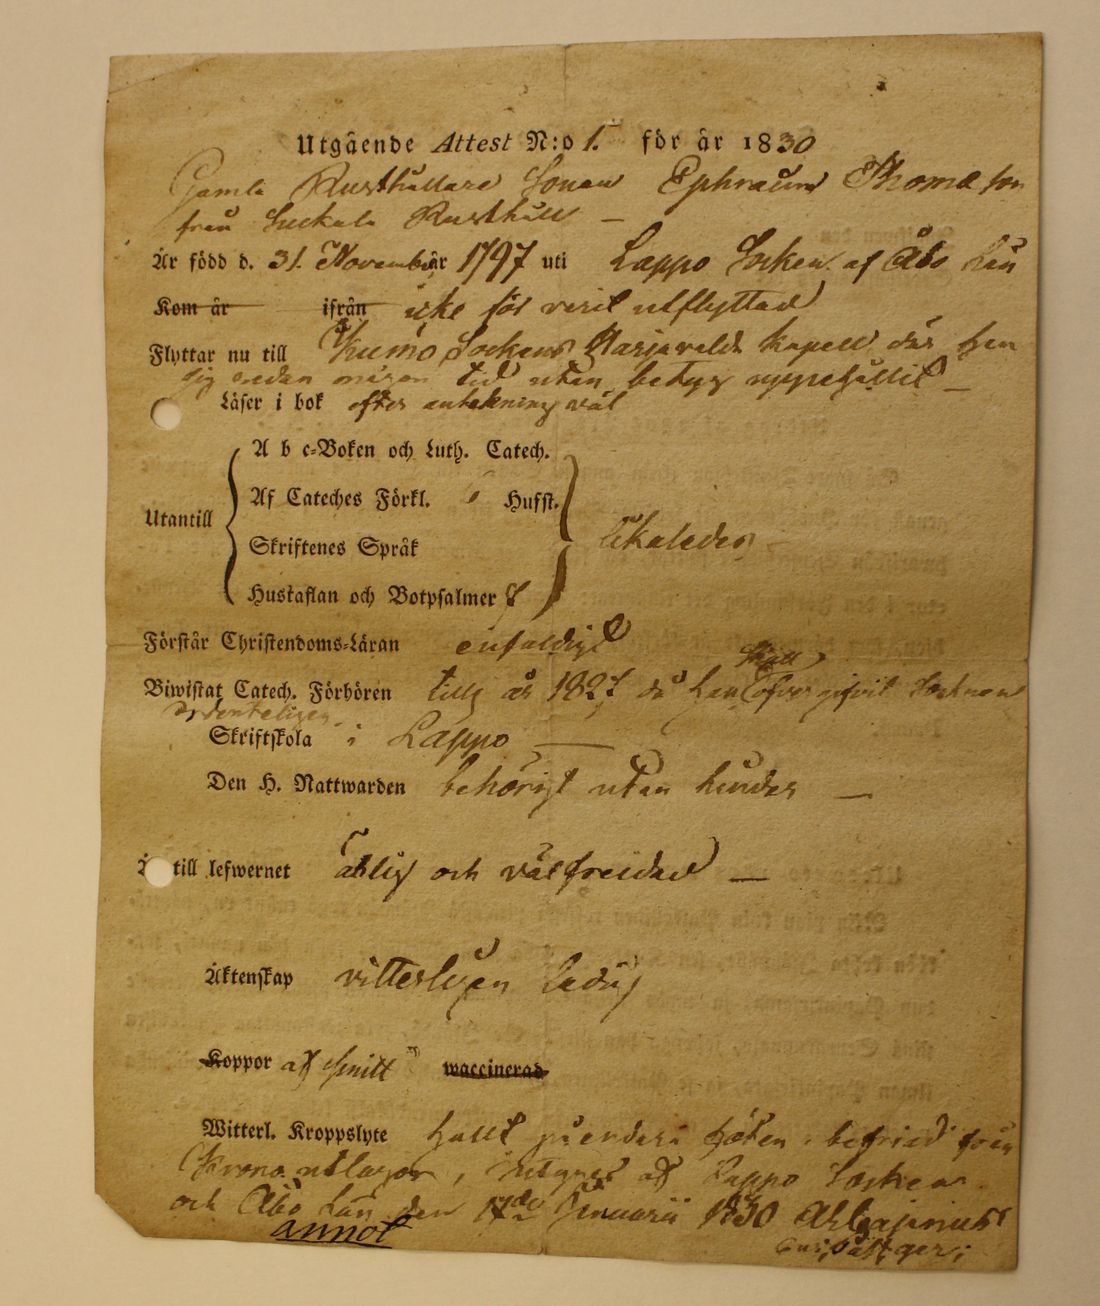 Utgående Attest N:o 1. för år 1830
Gamle Rusthållare Sonen Ephraim Thomæ son
från Suckala Rusthåll —
Är född d. 31. November år 1797 uti Lappo Socken af Åbo Län
Kom år ifrån icke för varit utflyttad
Flyttar nu till Kumo Sockens Harjavalda Kapell där han
sig redan någon tid utan betyg uppehållit —
Läser i bok efter antekning väl
Utantill
A b c-Boken och Luth. Catech.
Af Cateches Förkl. Hufst.
Skriftenes Språk
Hustaflan och Botpsalmer 7
likaledes
Förstår Christendoms-Läran enfaldigt
Biwistat Catech. Förhören till år 1827 då han skall öfvergifvit Socknen
ordenteligen
Skriftskola i Lappo —
Den H. Nattwarden behörigt utan hinder —
till lefwernet ärlig och välfreidad —
Äktenskap vitterligen ledig
Koppor af Smitt waccinerad
Witterl. Kroppslyte halt på endera foten, befriad från
Krono utlagor, betygas af Lappo Socken
och Åbo Län den 17de Januarii 1830
annot